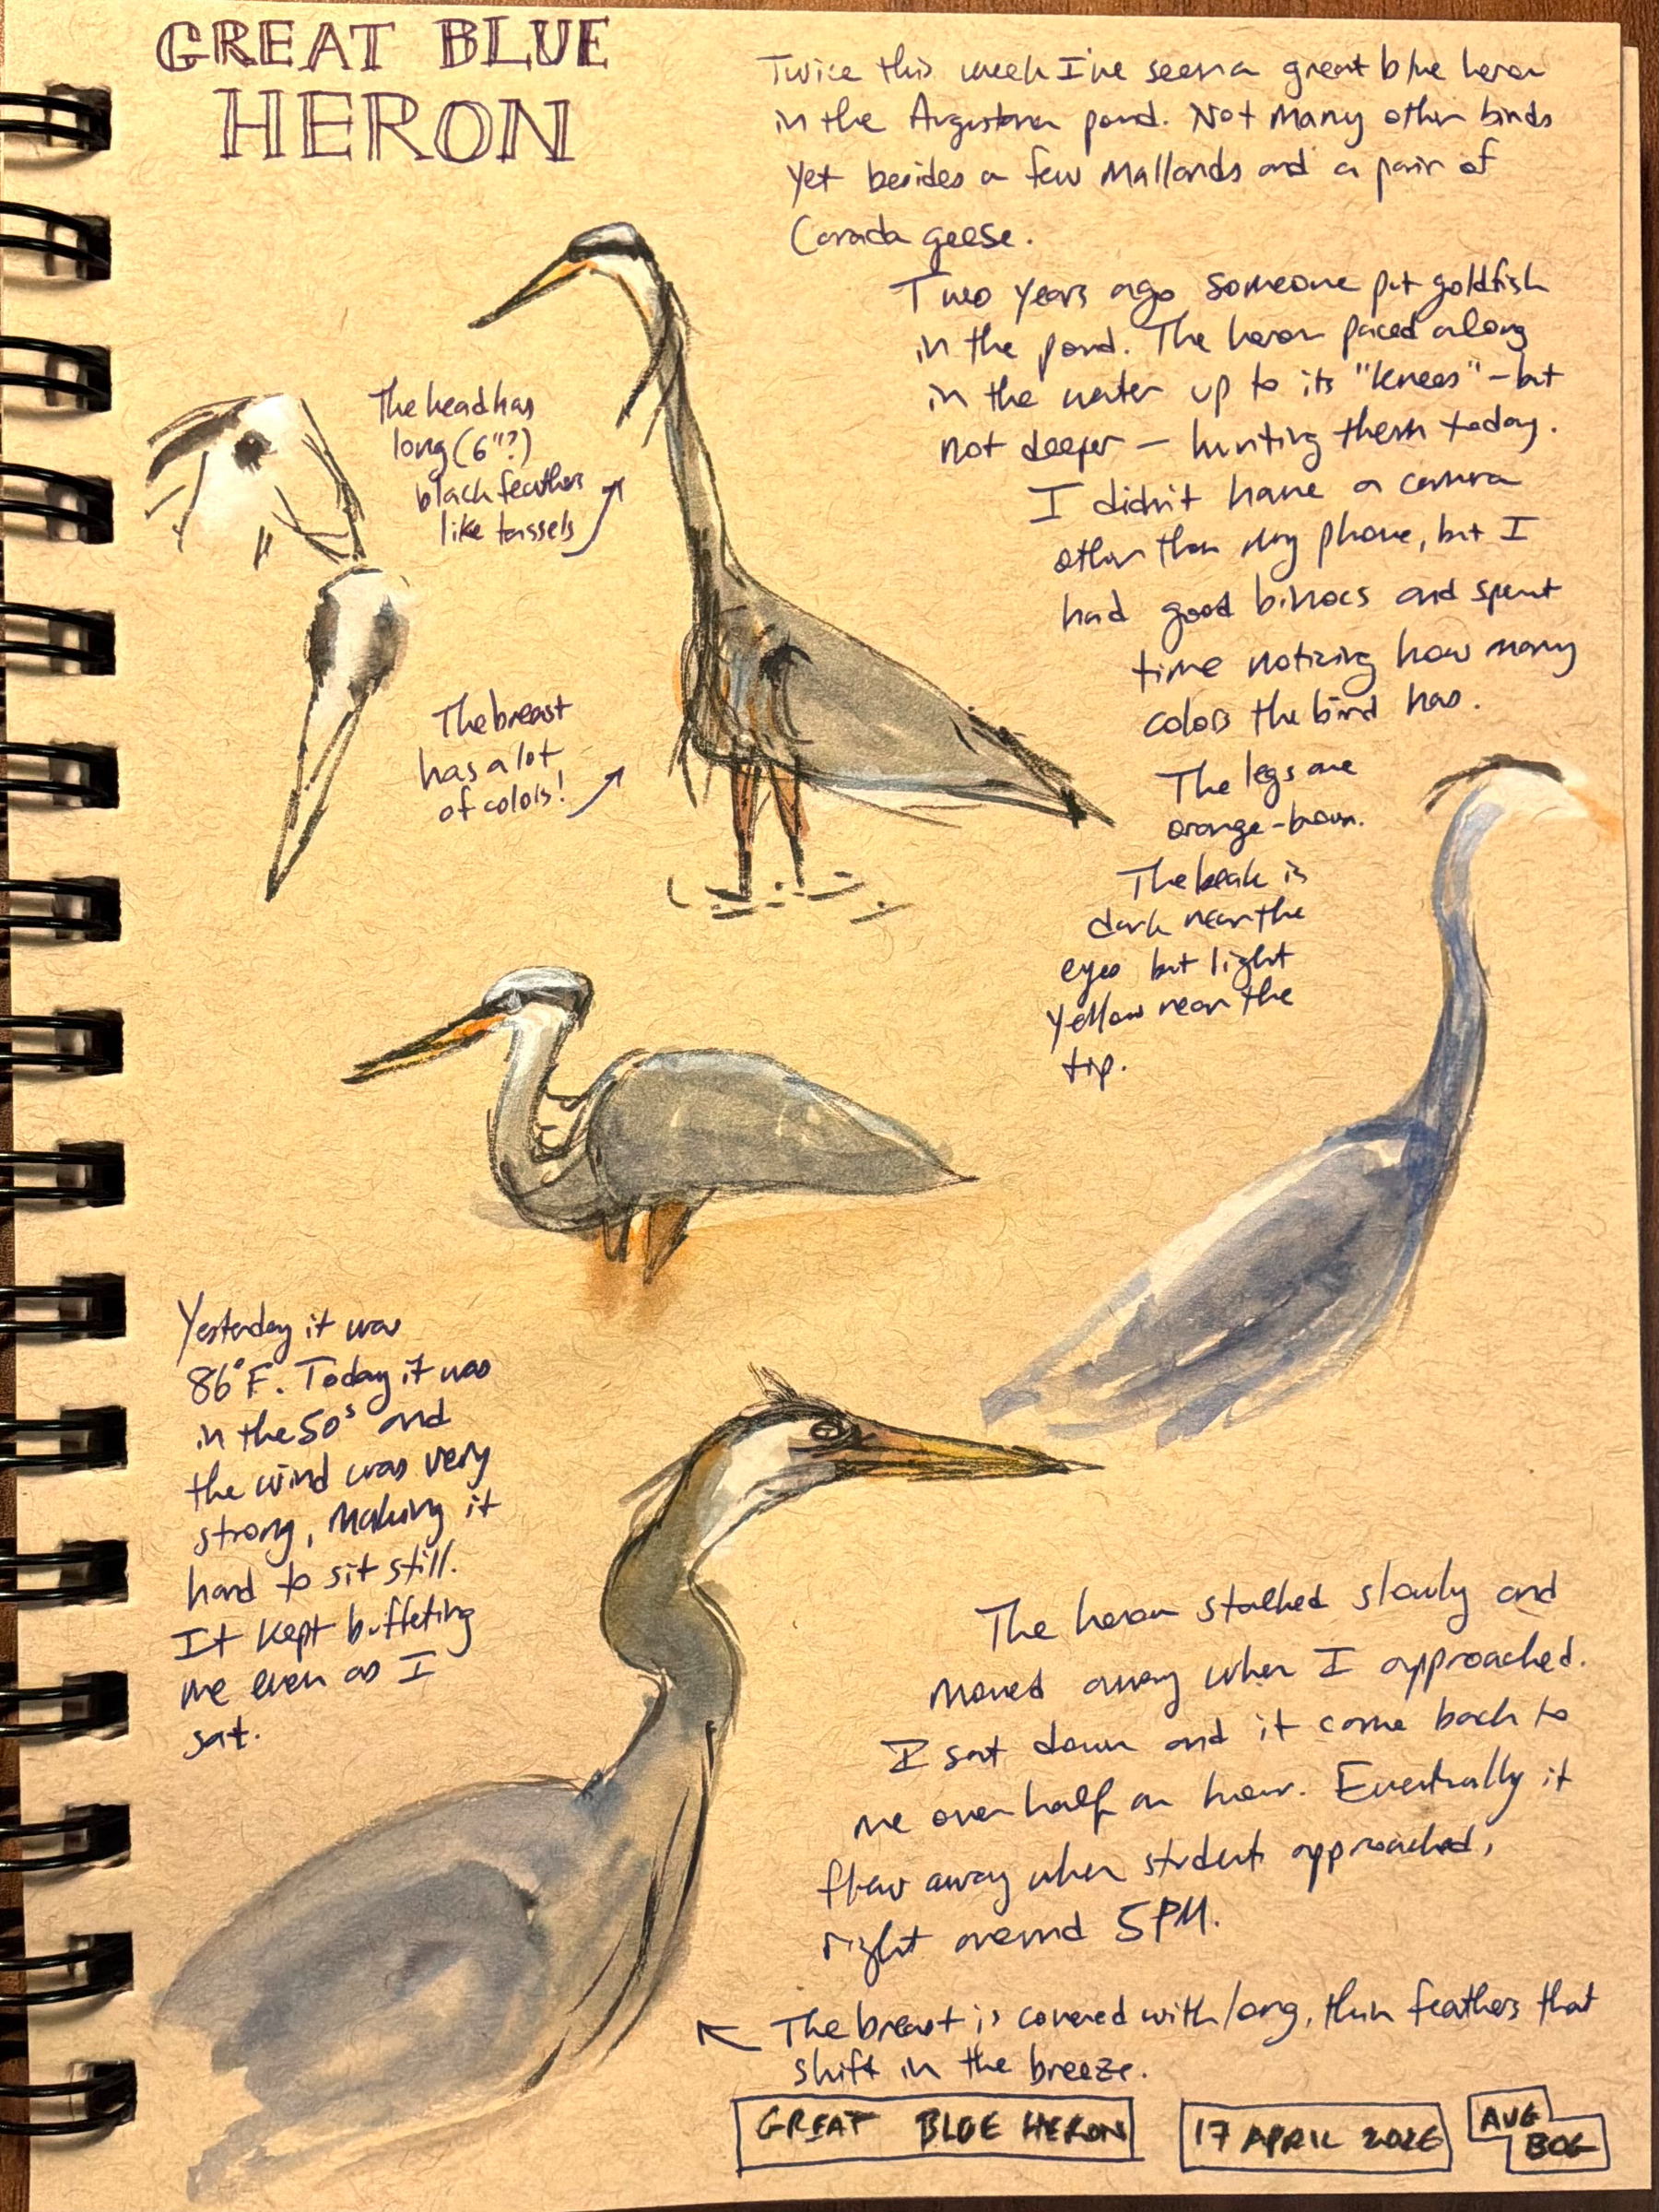 GREAT BLUE
HERON
Twice this week I've seen a great blue heron
in the Augustana pond. Not many other birds
yet besides a few mallards and a pair of
Canada geese.
Two years ago someone put goldfish
in the pond. The heron paced along
in the water up to its "knees" – but
not deeper – hunting them today.
I didn't have a camera
other than my phone, but I
had good binocs and spent
time noticing how many
colors the bird has.
The legs are
orange-brown.
The beak is
dark near the
eyes but light
yellow near the
tip.
The head has
long (6"?)
black feathers
like tassels
The breast
has a lot
of colors!
Yesterday it was
86°F. Today it was
in the 50s and
the wind was very
strong, making it
hard to sit still.
It kept buffeting
me even as I
sat.
The heron stalked slowly and
moved away when I approached.
I sat down and it came back to
me over half an hour. Eventually it
flew away when students approached,
right around 5PM.
The breast is covered with long, thin feathers that
shift in the breeze.
GREAT BLUE HERON
17 APRIL 2026
AUG
BOG